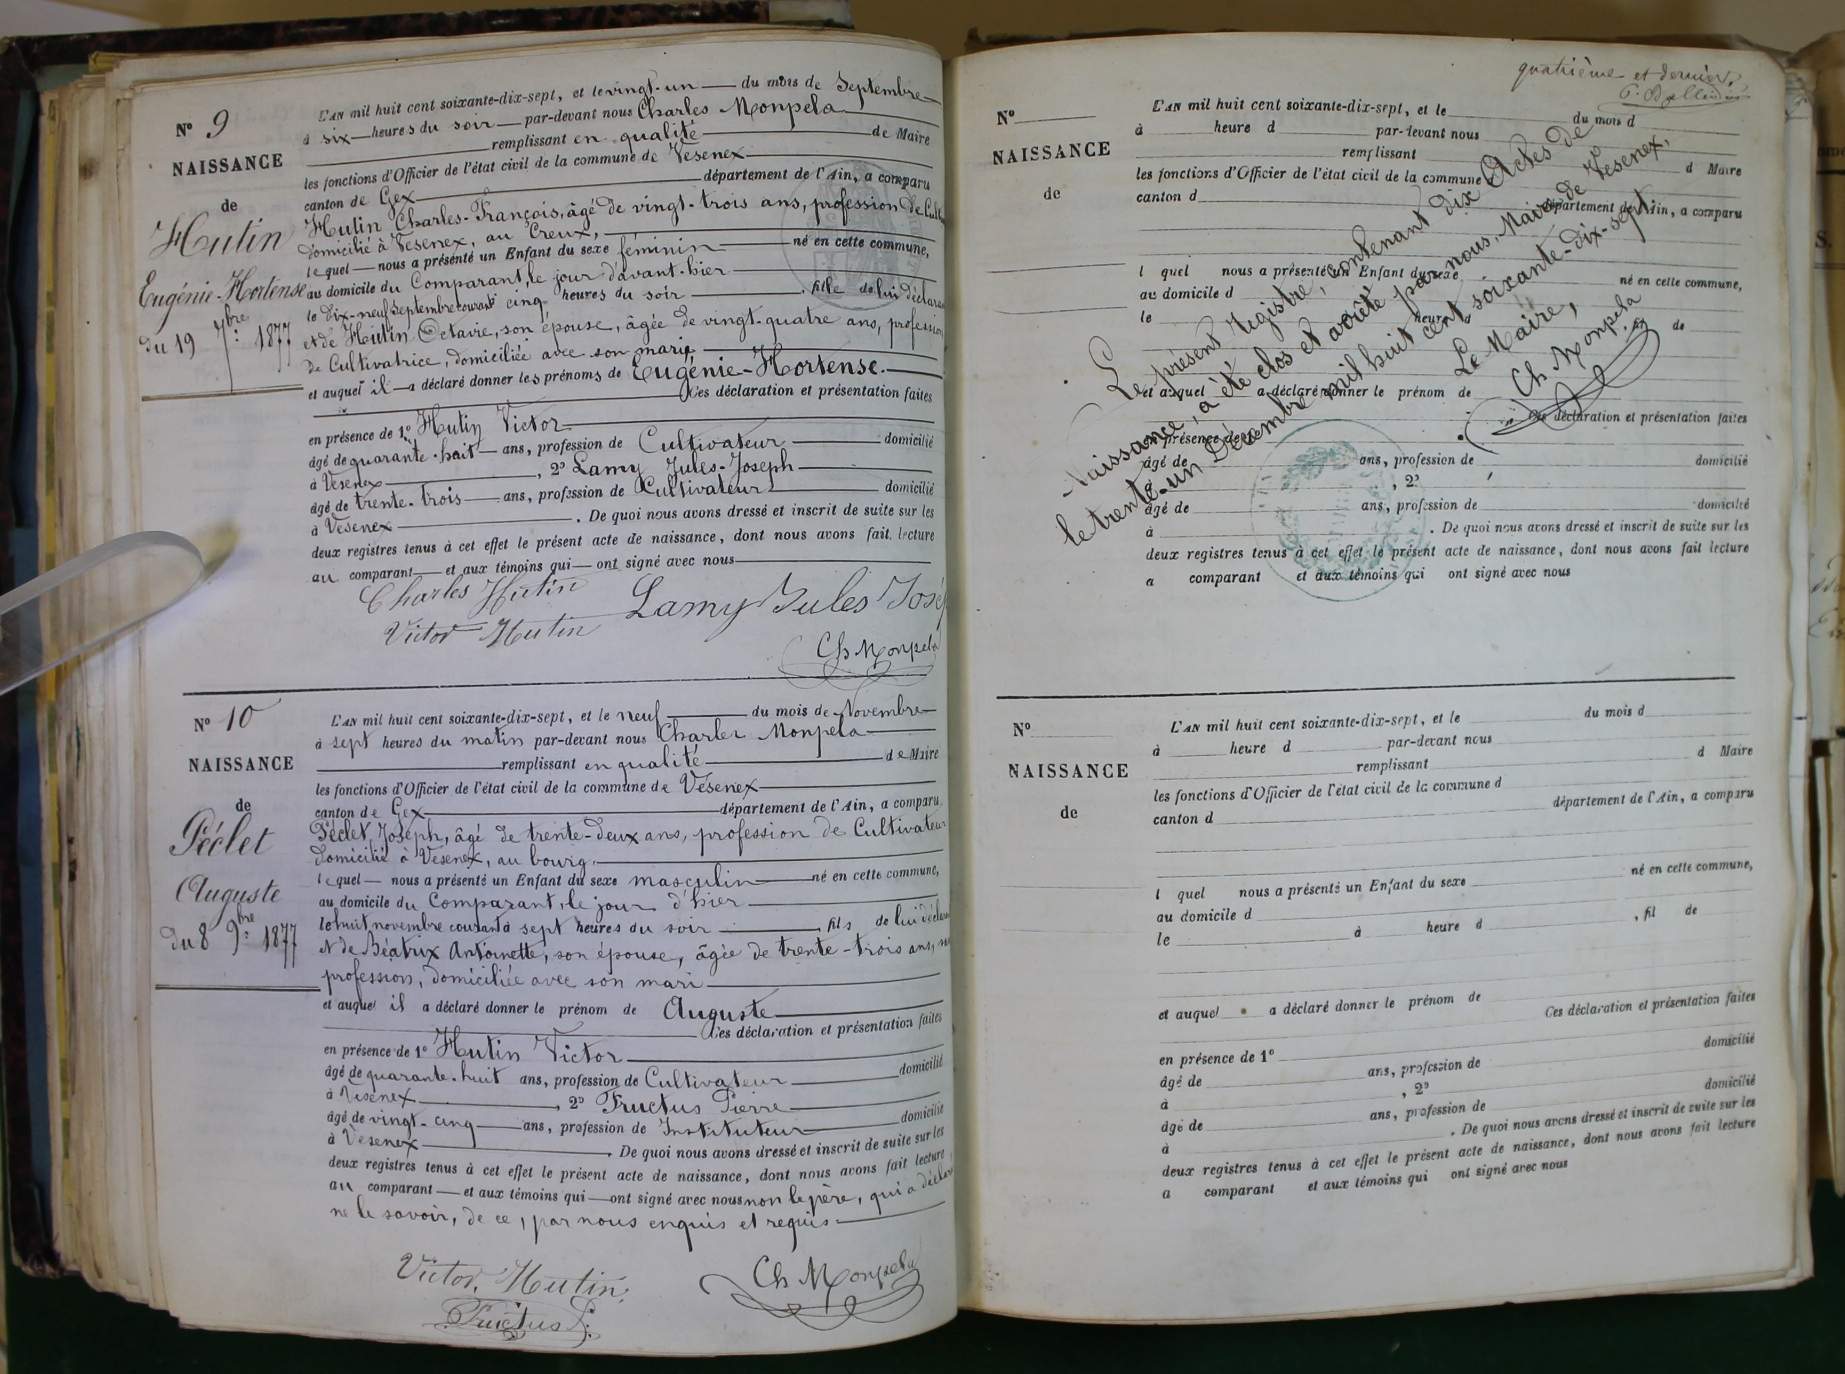 N° 9
NAISSANCE
de
Hutin
Eugénie-Hortense
du 19 7bre 1877
L'AN mil huit cent soixante-dix-sept, et le vingt-un du mois de Septembre
à six heures du soir par-devant nous Charles Monpela
remplissant en qualité de Maire
les fonctions d'Officier de l'état civil de la commune de Vesenex
canton de Gex département de l'Ain, a comparu
Hutin Charles-François, âgé de vingt-trois ans, profession de
domicilié à Vesenex, au Creux,
lequel nous a présenté un Enfant du sexe féminin né en cette commune,
au domicile du Comparant, le jour d'avant-hier
le dix-neuf Septembre courant cinq heures du soir fille de lui déclarant
et de Hutin Octavie, son épouse, âgée de vingt-quatre ans, profession
de Cultivatrice, domiciliée avec son mari
et auquel il a déclaré donner les prénoms de Eugénie-Hortense.
Ces déclaration et présentation faites
en présence de 1° Hutin Victor
âgé de quarante-huit ans, profession de Cultivateur domicilié
à Vesenex , 2° Lamy Jules-Joseph
âgé de trente-trois ans, profession de Cultivateur domicilié
à Vesenex . De quoi nous avons dressé et inscrit de suite sur les
deux registres tenus à cet effet le présent acte de naissance, dont nous avons fait lecture
au comparant et aux témoins qui ont signé avec nous
Charles Hutin Lamy Jules José
Victor Hutin
Ch Monpela
N° 10
NAISSANCE
de
Péclet
Auguste
du 8 9bre 1877
L'AN mil huit cent soixante-dix-sept, et le neuf du mois de Novembre
à sept heures du matin par-devant nous Charles Monpela
remplissant en qualité de Maire
les fonctions d'Officier de l'état civil de la commune de Vesenex
canton de Gex département de l'Ain, a comparu
Péclet Joseph, âgé de trente-deux ans, profession de Cultivateur
domicilié à Vesenex, au bourg.
lequel nous a présenté un Enfant du sexe masculin né en cette commune,
au domicile du Comparant, le jour d'hier
le huit novembre courant à sept heures du soir , fils de lui déclarant
et de Béatrix Antoinette, son épouse, âgée de trente-trois ans,
profession, domiciliée avec son mari
et auquel il a déclaré donner le prénom de Auguste
Ces déclaration et présentation faites
en présence de 1° Hutin Victor
âgé de quarante-huit ans, profession de Cultivateur domicilié
à Vesenex , 2° Fructus Pierre
âgé de vingt-cinq ans, profession de Instituteur domicilié
à Vesenex . De quoi nous avons dressé et inscrit de suite sur les
deux registres tenus à cet effet le présent acte de naissance, dont nous avons fait lecture
au comparant et aux témoins qui ont signé avec nous non le père, qui a déclaré
ne le savoir, de ce, par nous enquis et requis
Victor Hutin
Ch Monpela
Fructus P.
quatrième et dernier.
N°
NAISSANCE
de
L'AN mil huit cent soixante-dix-sept, et le du mois d
à heure d par-devant nous
remplissant d Maire
les fonctions d'Officier de l'état civil de la commune
canton d département de l'Ain, a comparu
l quel nous a présenté un Enfant du sexe né en cette commune,
au domicile d
le heure d de
et auquel a déclaré donner le prénom de
Ces déclaration et présentation faites
en présence de
âgé de ans, profession de domicilié
à , 2°
âgé de ans, profession de domicilié
à . De quoi nous avons dressé et inscrit de suite sur les
deux registres tenus à cet effet le présent acte de naissance, dont nous avons fait lecture
a comparant et aux témoins qui ont signé avec nous
Le présent Registre, contenant dix Actes de
Naissance, a été clos et arrêté par nous, Maire de Vesenex,
le trente-un Décembre mil huit cent soixante-dix-sept
Le Maire,
Ch Monpela
N°
NAISSANCE
de
L'AN mil huit cent soixante-dix-sept, et le du mois d
à heure d par-devant nous
remplissant d Maire
les fonctions d'Officier de l'état civil de la commune d
canton d département de l'Ain, a comparu
l quel nous a présenté un Enfant du sexe né en cette commune,
au domicile d
le à heure d , fil de
et auquel a déclaré donner le prénom de
Ces déclaration et présentation faites
en présence de 1°
âgé de ans, profession de domicilié
à , 2°
âgé de ans, profession de domicilié
à . De quoi nous avons dressé et inscrit de suite sur les
deux registres tenus à cet effet le présent acte de naissance, dont nous avons fait lecture
a comparant et aux témoins qui ont signé avec nous